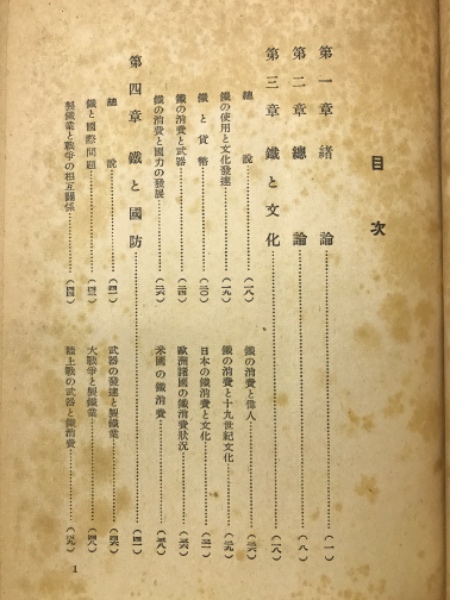 目次
第一章 緒論……(一)
第二章 總論……(八)
第三章 鐵と文化……(一八)
總說……(一八)
鐵の使用と文化發達……(一九)
鐵と貨幣……(二〇)
鐵の消費と武器……(二四)
鐵の消費と國力の發展……(二六)
鐵の消費と偉人……(二六)
鐵の消費と十九世紀文化……(二九)
日本の鐵消費と文化……(三一)
歐洲諸國の鐵消費狀況……(三六)
米國の鐵消費……(三八)
第四章 鐵と國防……(四一)
總說……(四一)
鐵と國際問題
製鐵業と戰爭の相互關係
武器の發達と製鐵業……(四六)
大戰爭と製鐵業……(四八)
陸上戰の武器と鐵消費……(五九)
1